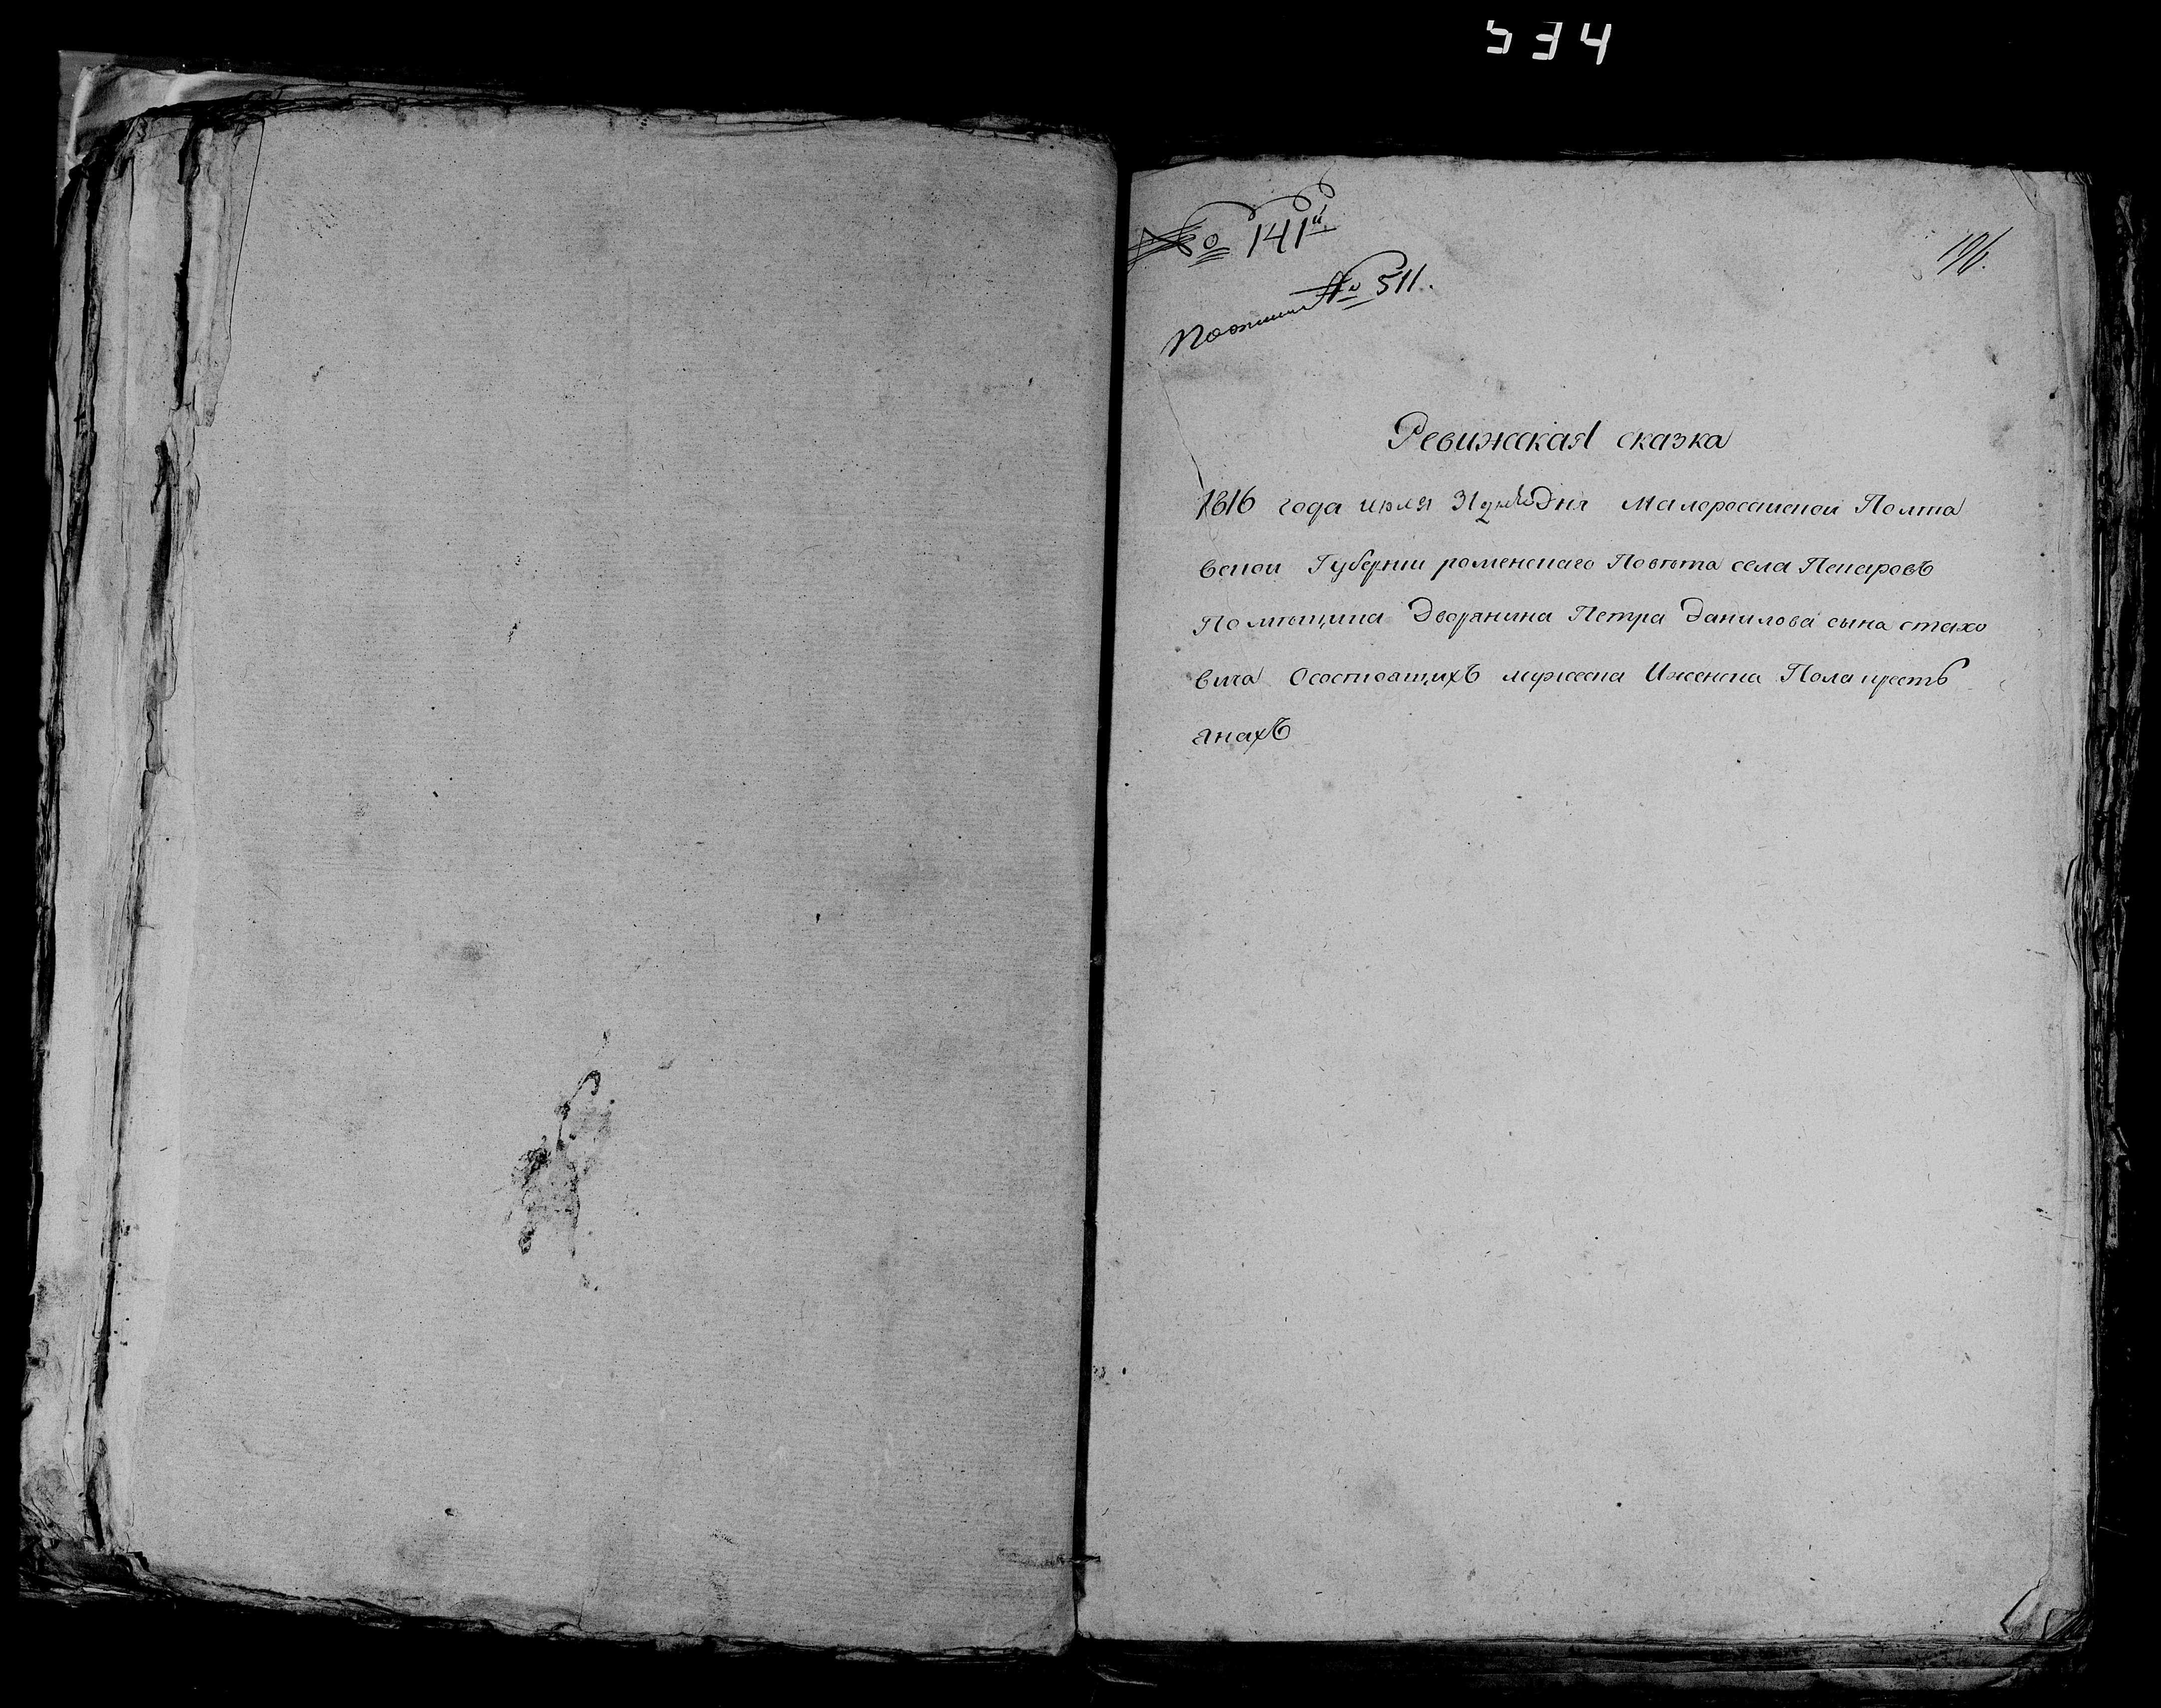 534
№ 141й
196.
По описи № 511.
Ревижская сказка
1816 года июля 31 дня Малоросииской Полта
вской Губернии роменскаго Повѣта села Пекаровъ
Помѣщика Дворянина Петра Данилова сына стахо
вича Осостоящихъ мужеска Иженска Пола кресть
янахъ